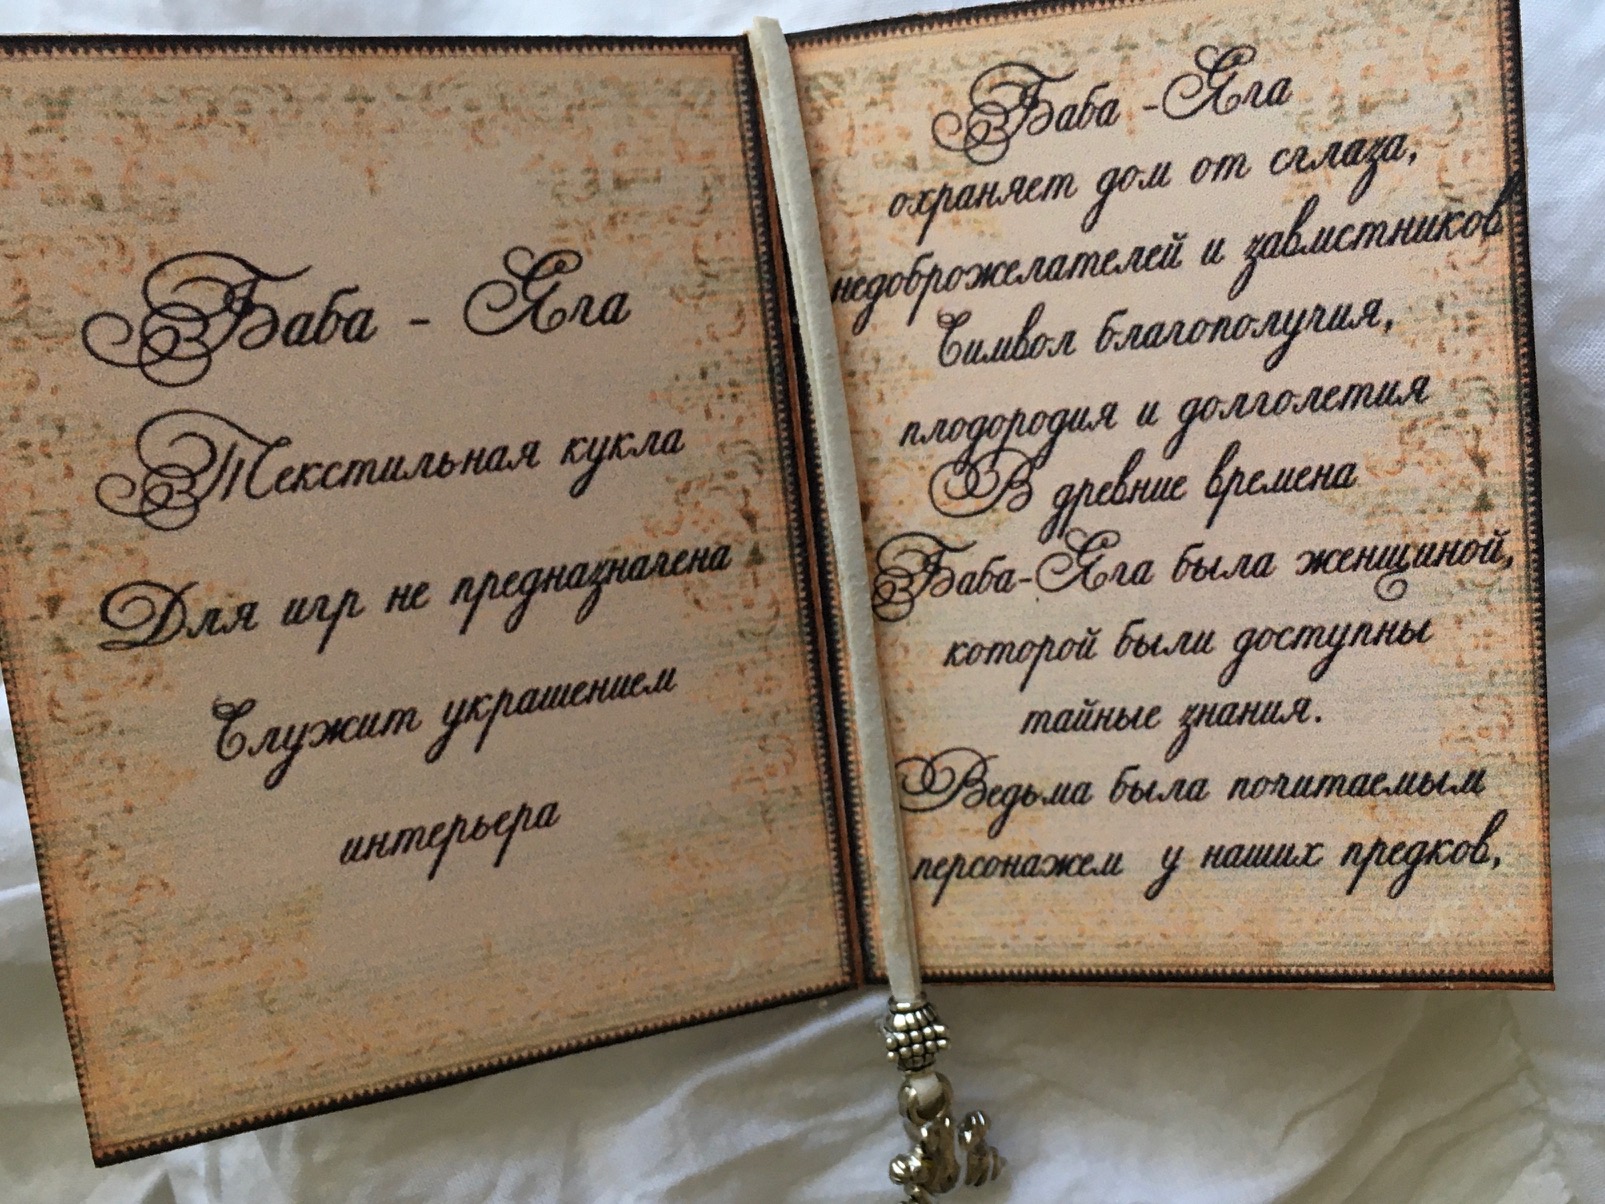 Баба - Яга
Текстильная кукла
Для игр не предназначена
Служит украшением
интерьера
Баба -Яга
охраняет дом от сглаза,
недоброжелателей и завистников
Символ благополучия,
плодородия и долголетия
В древние времена
Баба-Яга была женщиной,
которой были доступны
тайные знания.
Ведьма была почитаемым
персонажем у наших предков,